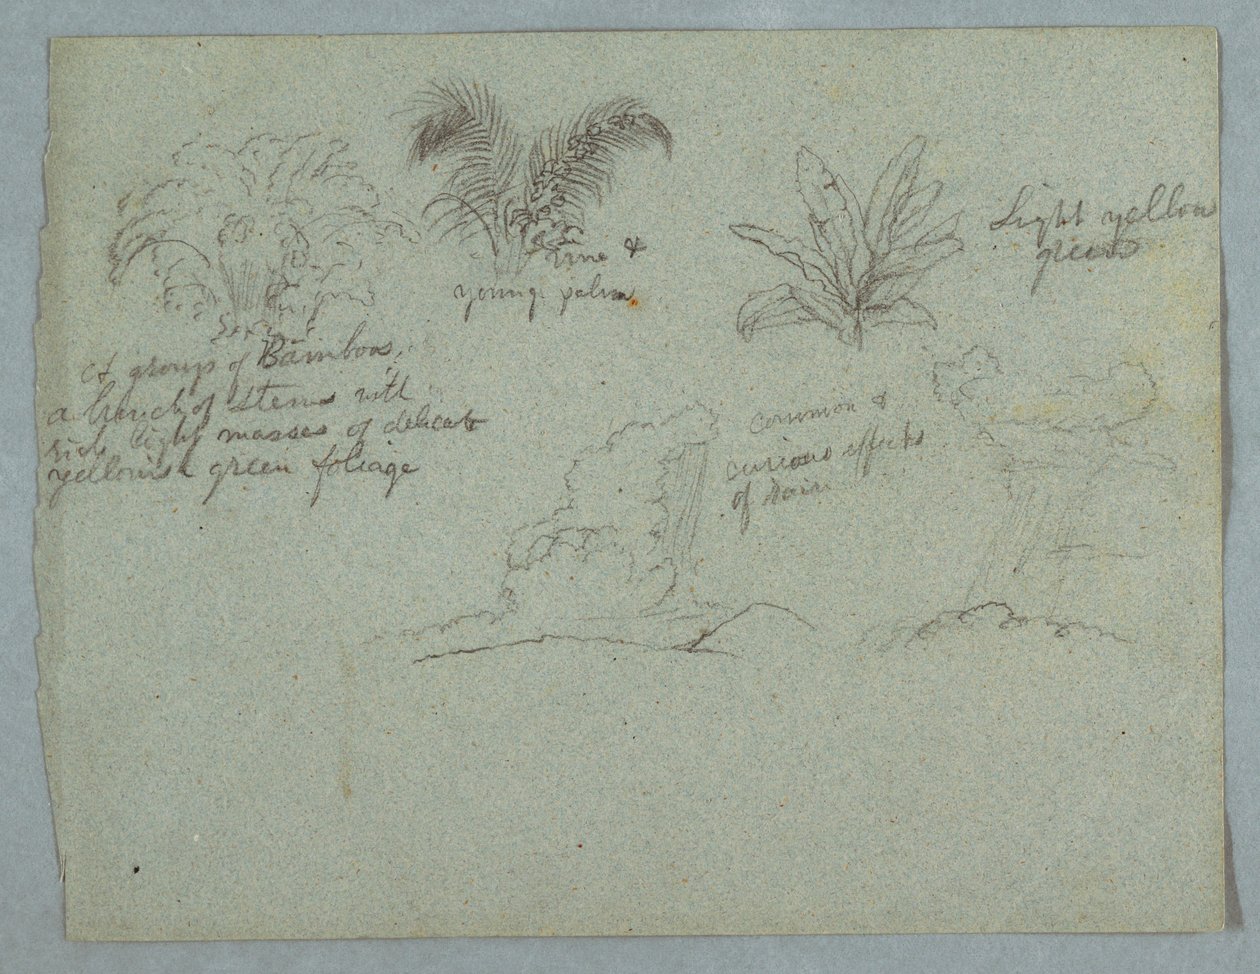 Vine &
young palm
Light yellow
green
A group of Bamboos,
a bunch of stems with
rich light masses of delicate
yellowish green foliage
common &
curious effects
of rain